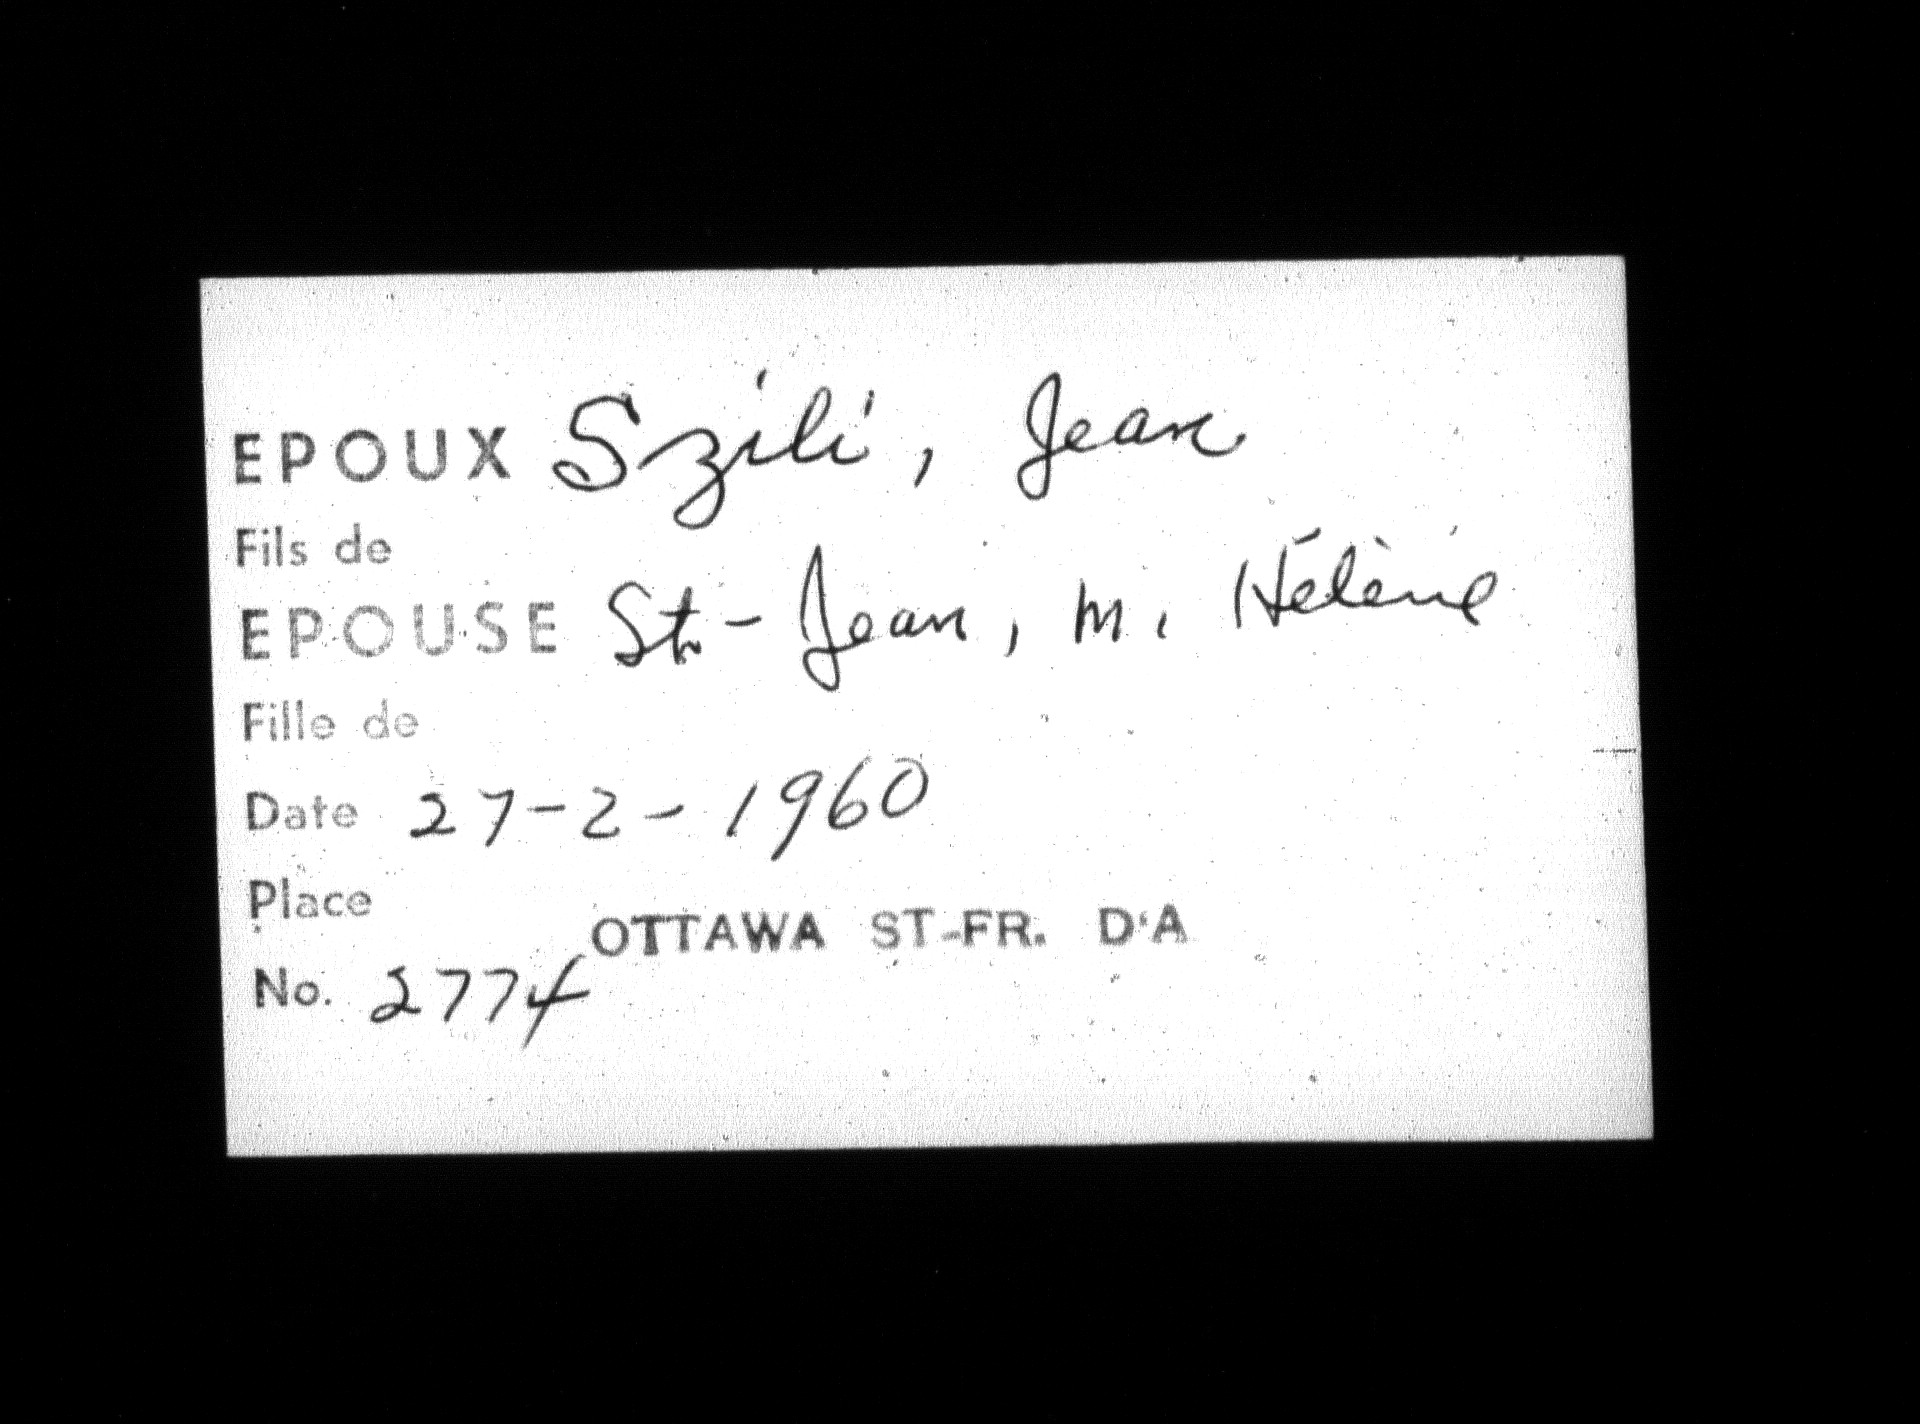 EPOUX Szili, Jean
Fils de
EPOUSE St-Jean, M. Hélène
Fille de
Date 27-2-1960
Place OTTAWA ST-FR. D'A
No. 2774